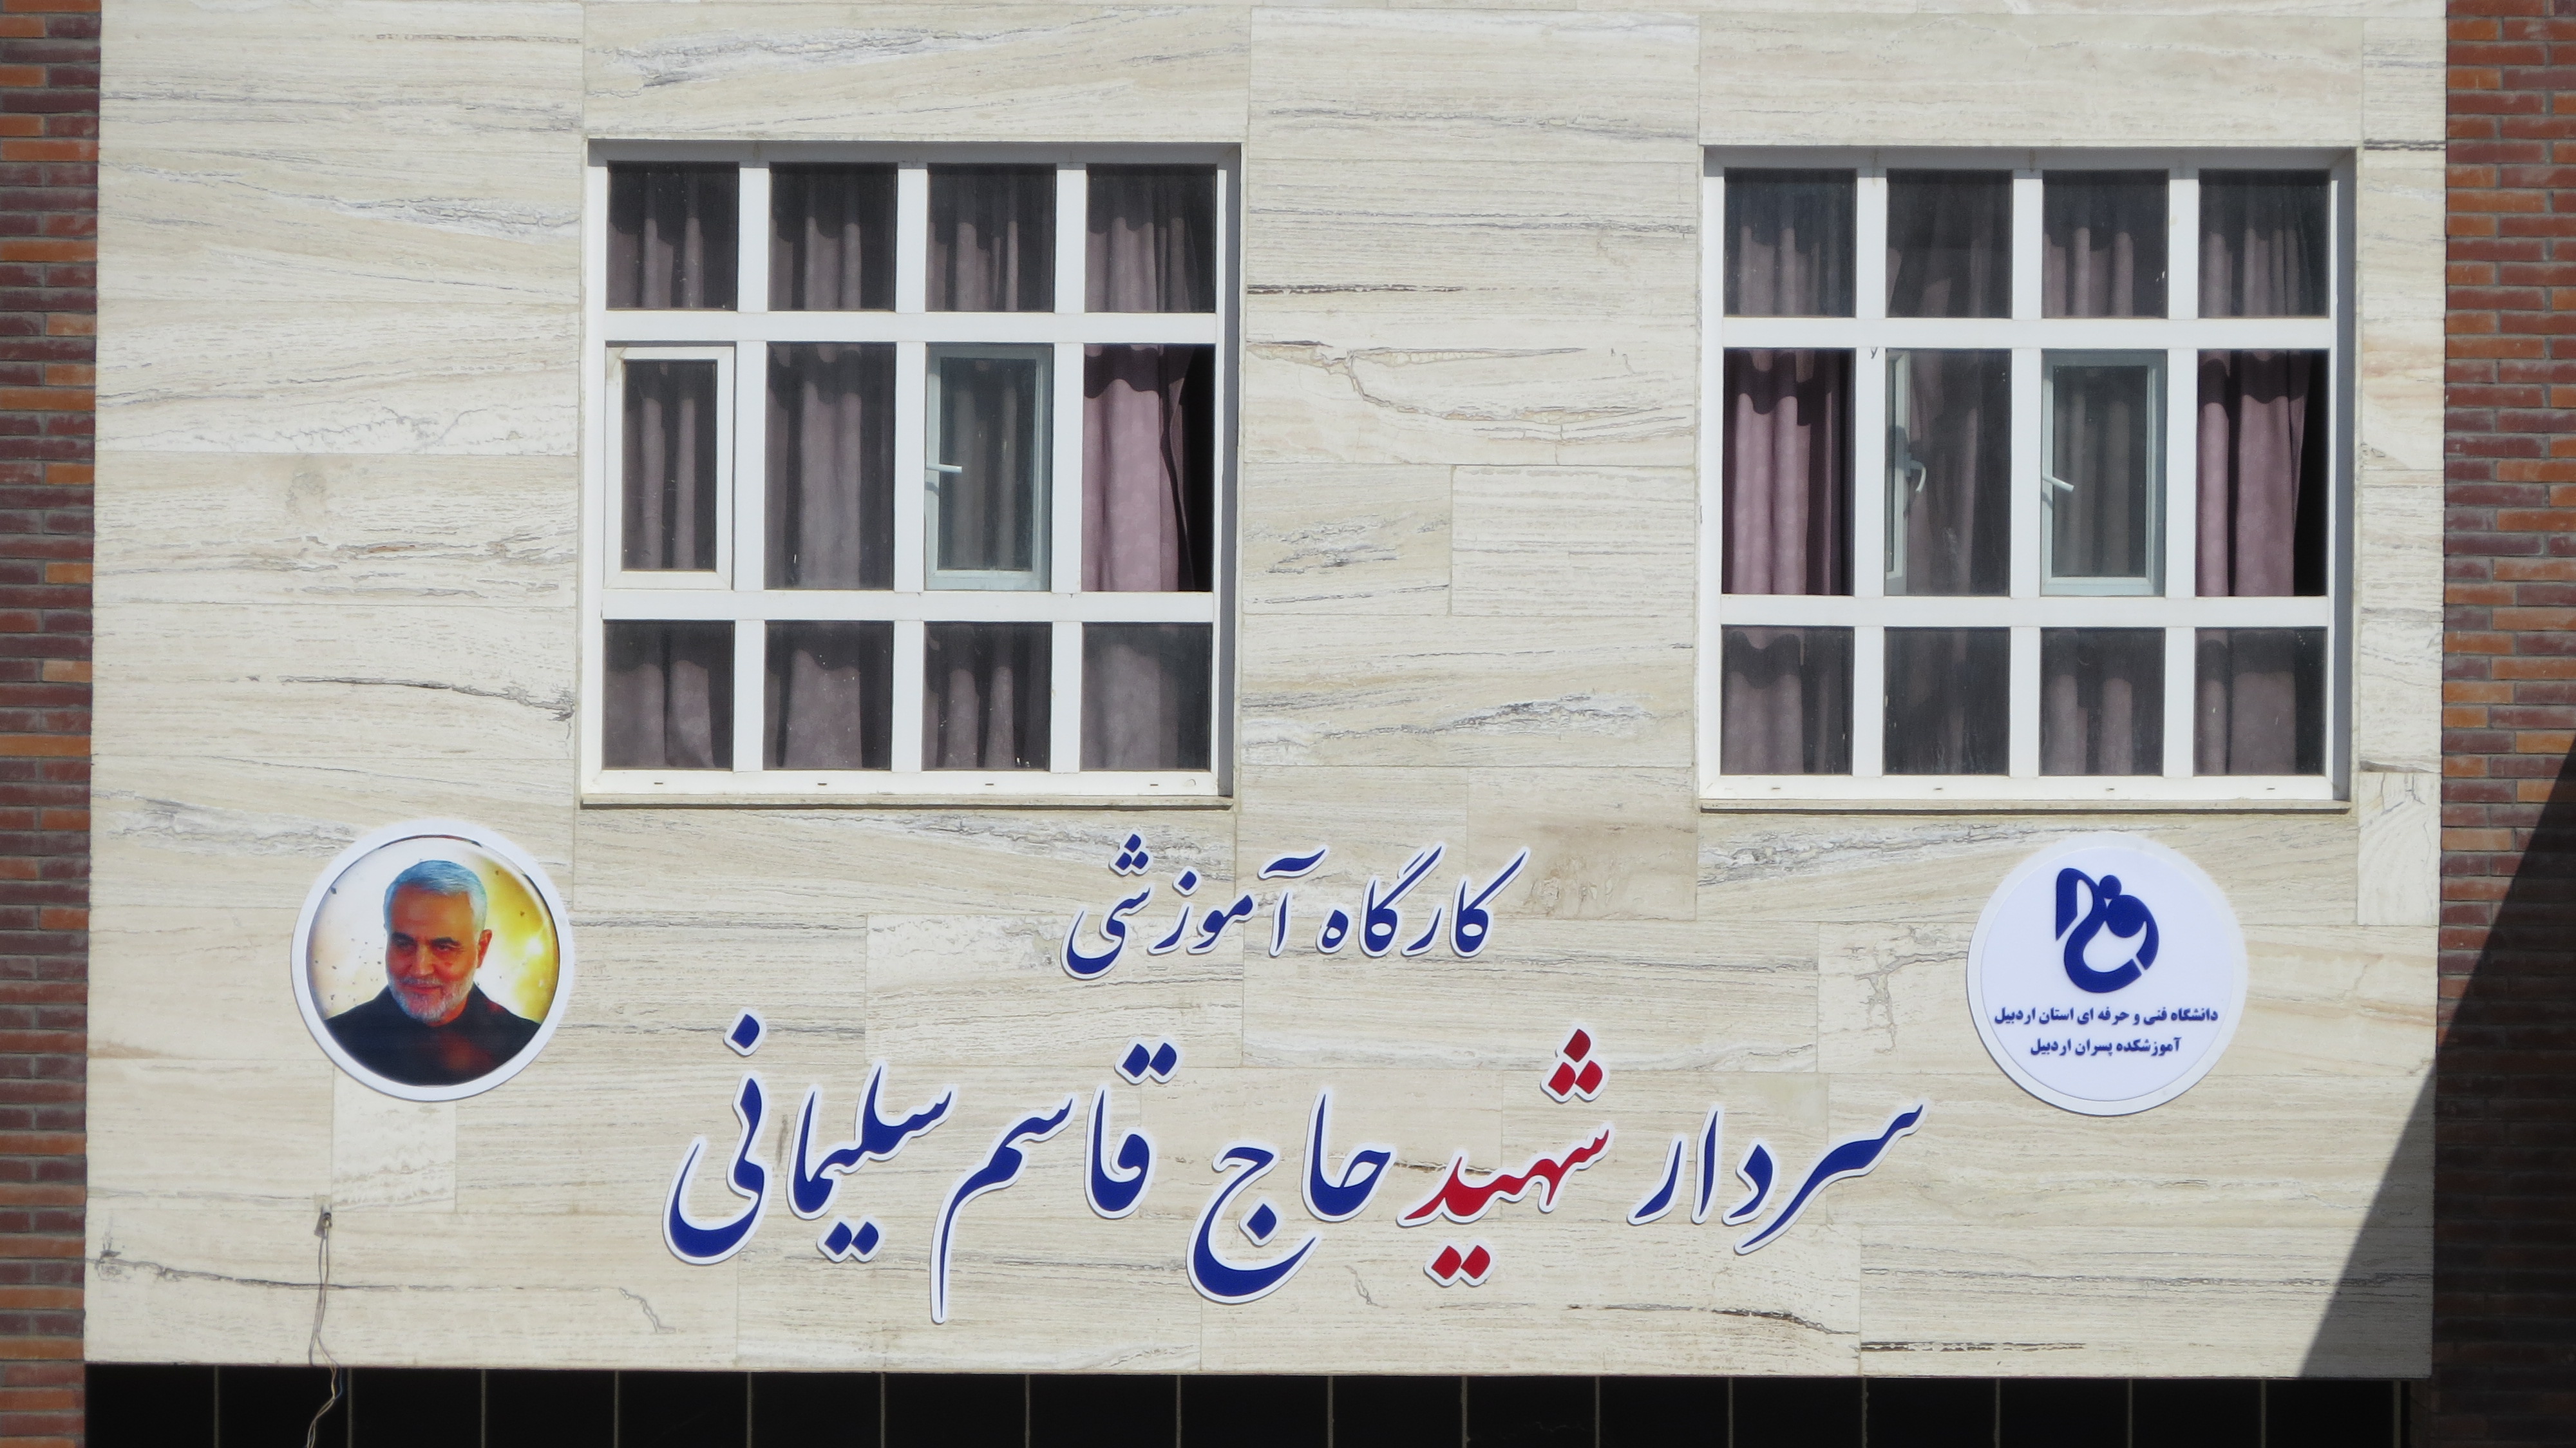 کارگاه آموزشی
سردار شهید حاج قاسم سلیمانی
دانشگاه فنی و حرفه ای استان اردبیل
آموزشکده پسران اردبیل